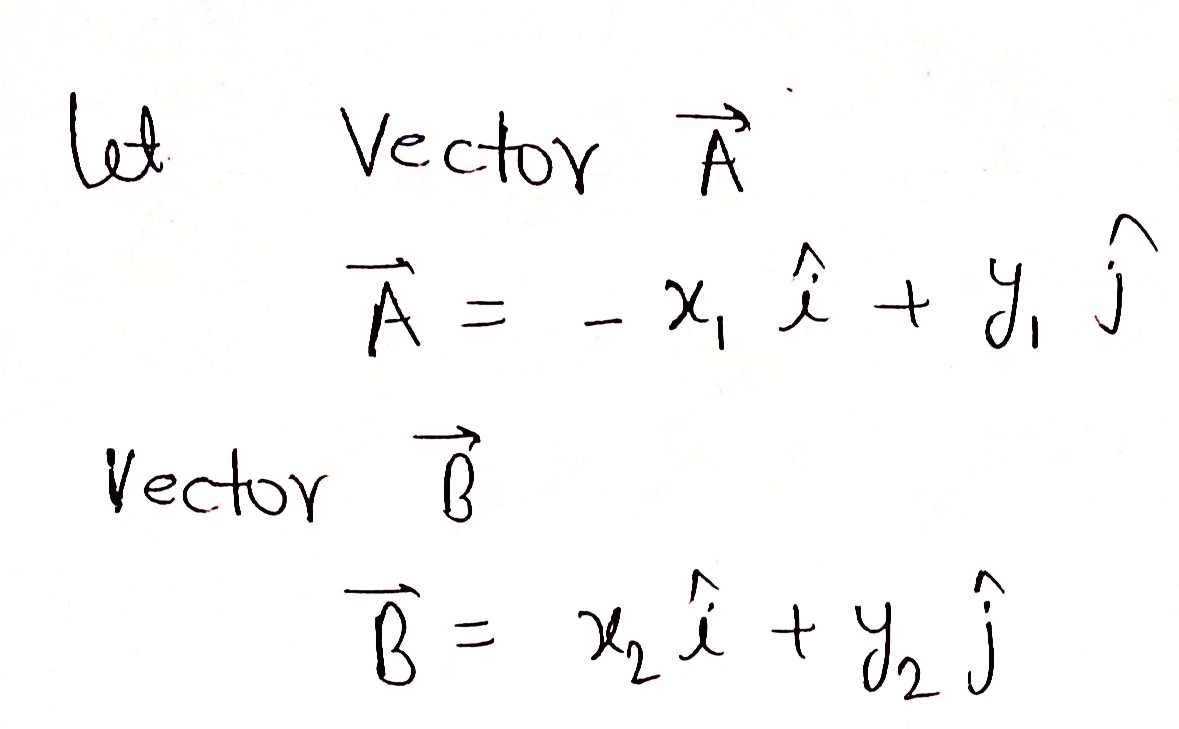 Let Vector A⃗
A⃗ = - x₁ î + y₁ ĵ
Vector B⃗
B⃗ = x₂ î + y₂ ĵ